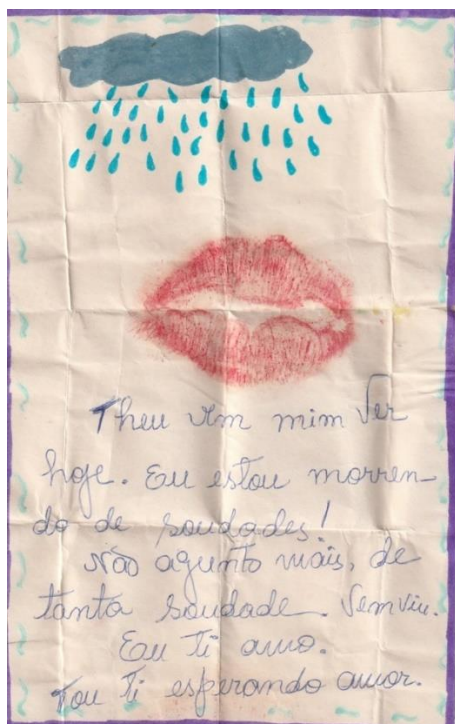 Theu vem mim ver
hoje. Eu estou morren-
do de soudades!
Não agunto mais, de
tanta soudade. Vem viu.
Eu ti amo.
Tou ti esperando amor.